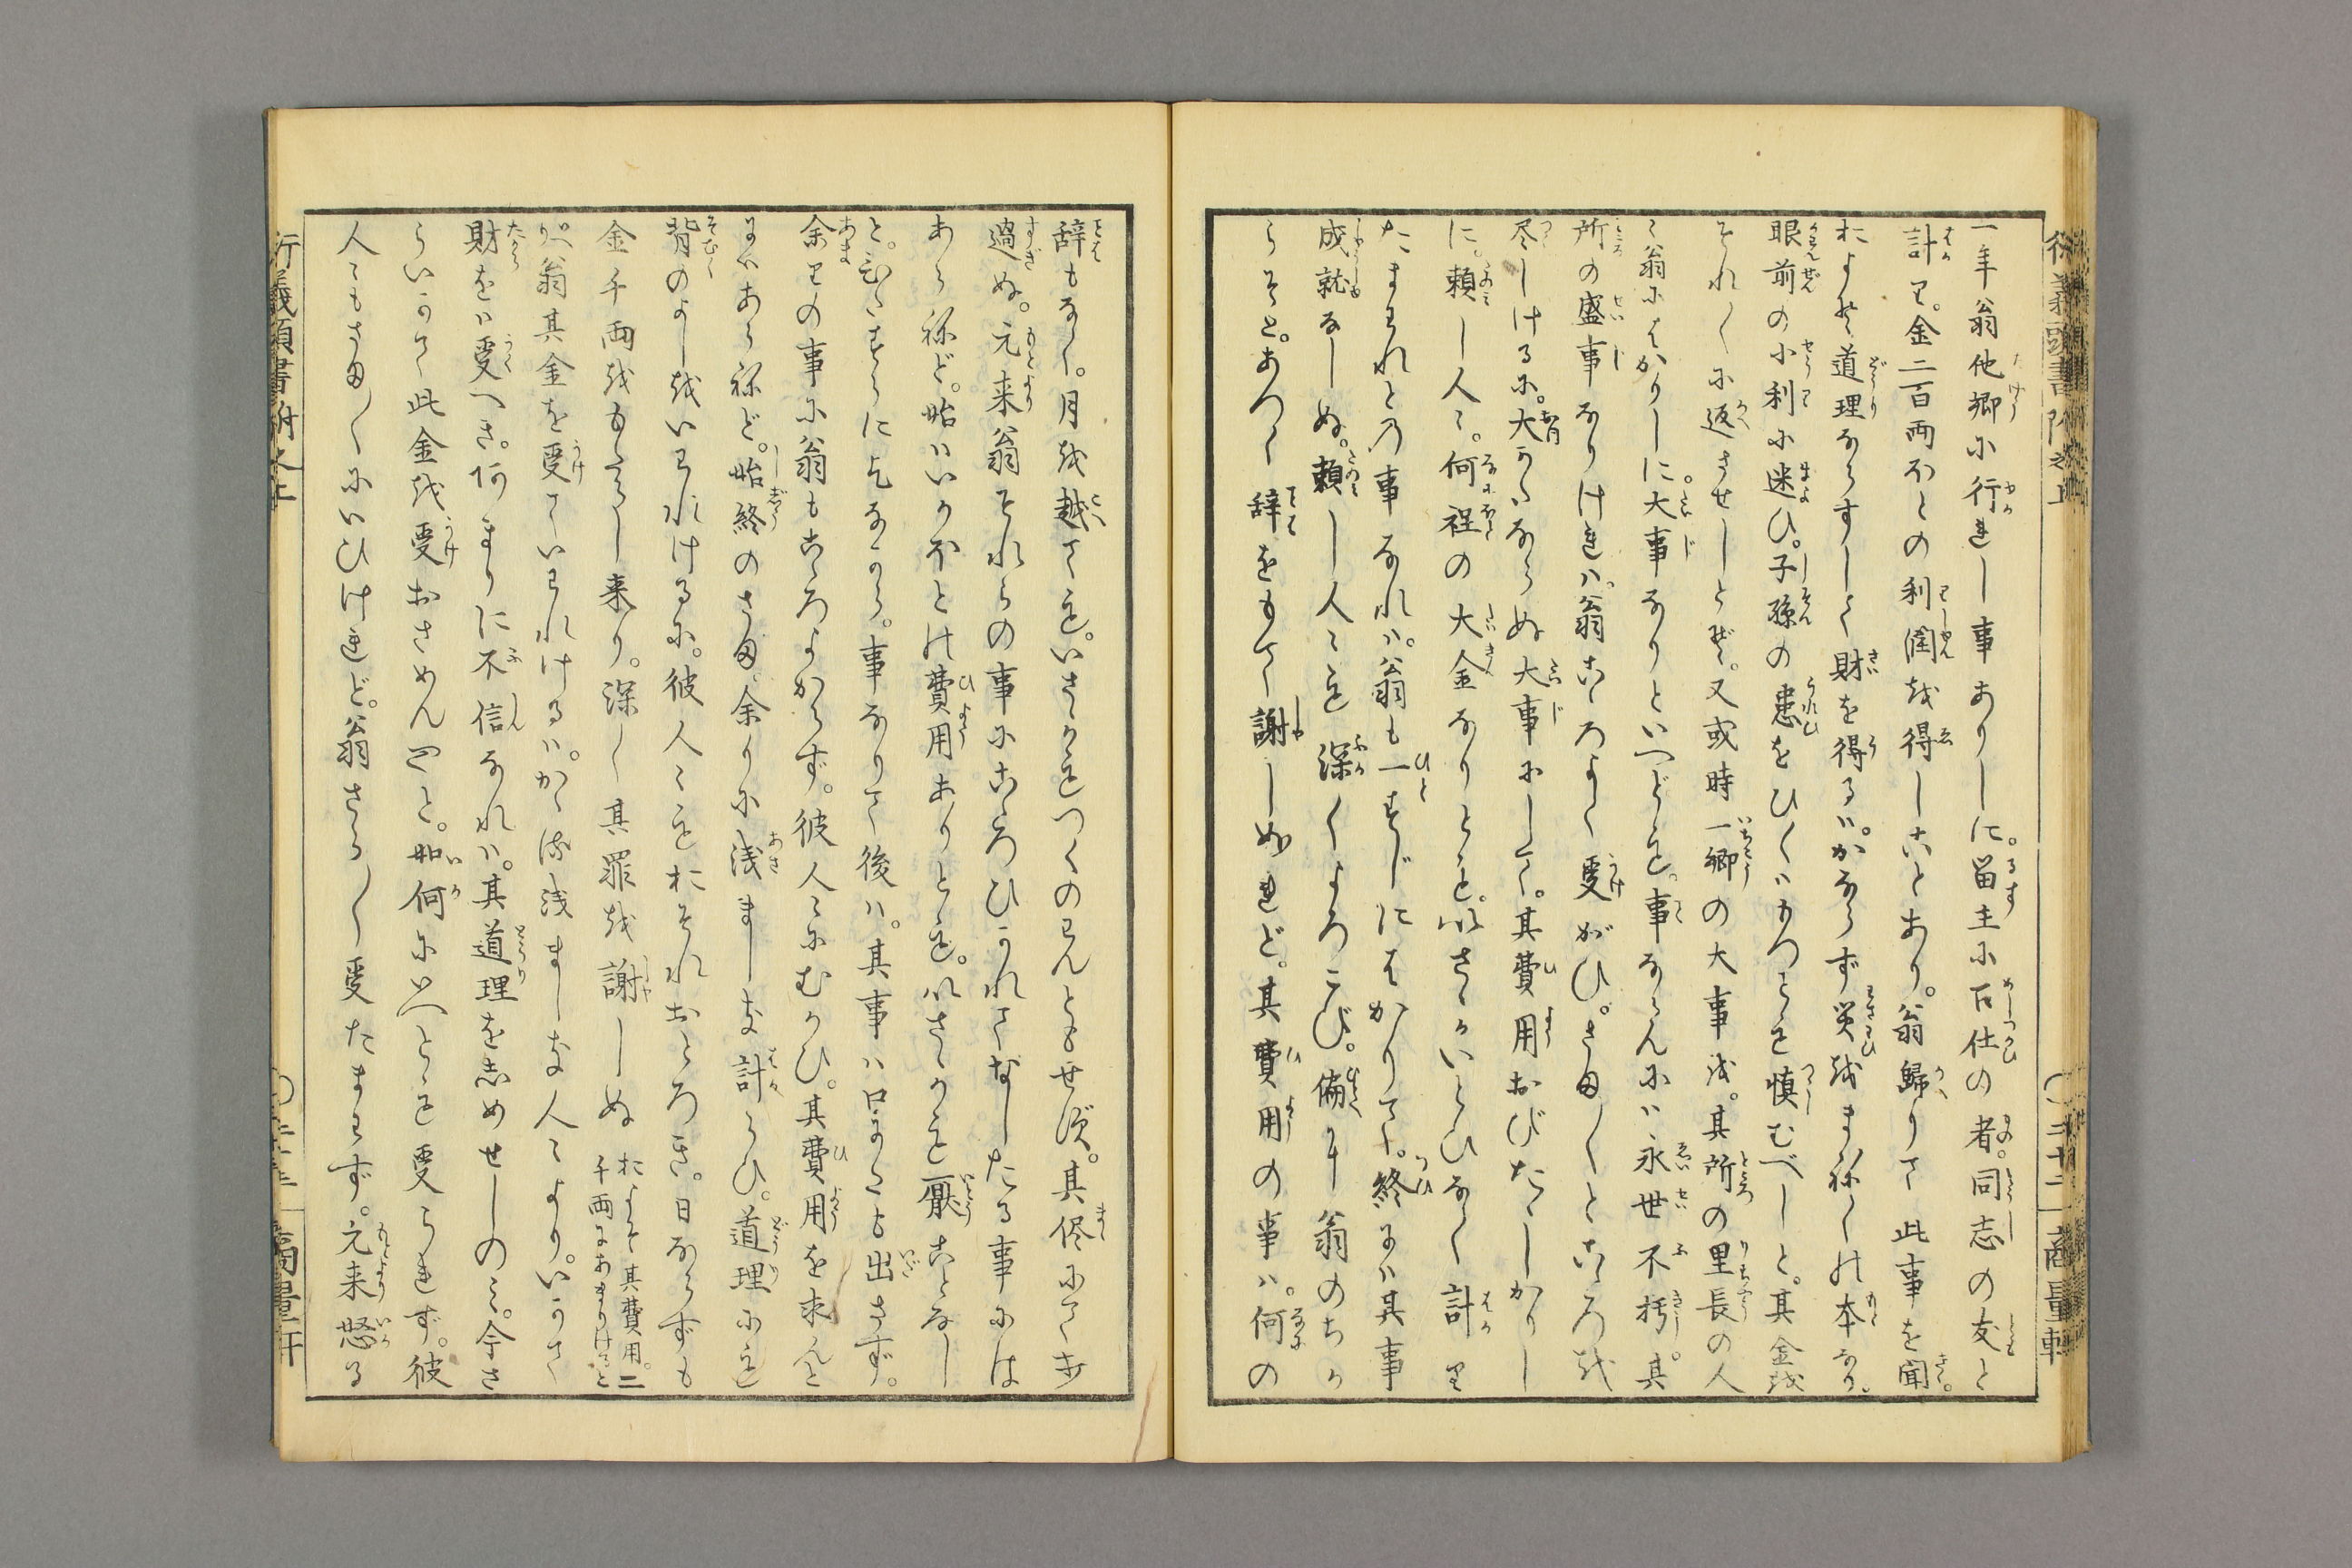 一年翁他郷に行れし事ありしに。留主に召仕の者。同志の友と
計り。金二百両ほとの利潤を得しことあり。翁帰りて此事を聞。
およそ道理ならすして財を得るハ。かならず災をまねくの本なり。
眼前の小利に迷ひ。子孫の患をひくハもつとも慎むべしと。其金を
それ〱に返させしとぞ。又或時一郷の大事を。其所の里長の人
々翁にはかりしに。大事なりといへども。事ならんにハ永世不朽。其
所の盛事なりけれハ。翁こゝろよく受がひ。さま〱とこゝろを
尽しけるに。大かたならぬ大事にして。其費用おびたゝしかりし
に。頼し人々。何程の大金なりとも。いさゝかいとひなく計り
たまわれとの事なれハ。翁も一すじにはかりて。終にハ其事
成就なしぬ。頼し人々も深くよろこび。偏に翁のちか
らぞと。あつく辞をもて謝しぬれど。其費用の事ハ。何の
辞もなく。月を越ても。いさゝかもつくのわんともせず。其侭にて打
過ぬ。元来翁それらの事にこゝろひかれてなしたる事には
あらねど。始ハいかほとの費用ありとも。いさゝかも厭ことなし
と。ひたすらに乞ながら。事なりて後ハ。其事ハ口にたも出さず。
余りの事に翁もこゝろよからず。彼人々にむかひ。其費用を求んと
にハあらねど。始終のさま。余りに浅ましき計らひ。道理にも
背のよしをいわれけるに。彼人々もおそれおとろき。日ならずも
金千両をもたらし来り。深く其罪を謝しぬ
およそ其費用。二
千両にあまりけると
ぞ翁其金を受ていわれけるハ。かゝる浅ましき人々より。いかて
財をハ受へき。何まりに不信なれハ。其道理を志めせしのミ。今さ
らいかて此金を受おさめんやと。如何にいへとも受られず。彼
人々もさま〱にいひけれど。翁さら〱受たまわず。元来怒る
行義頭書附之上
二十二
商量軒